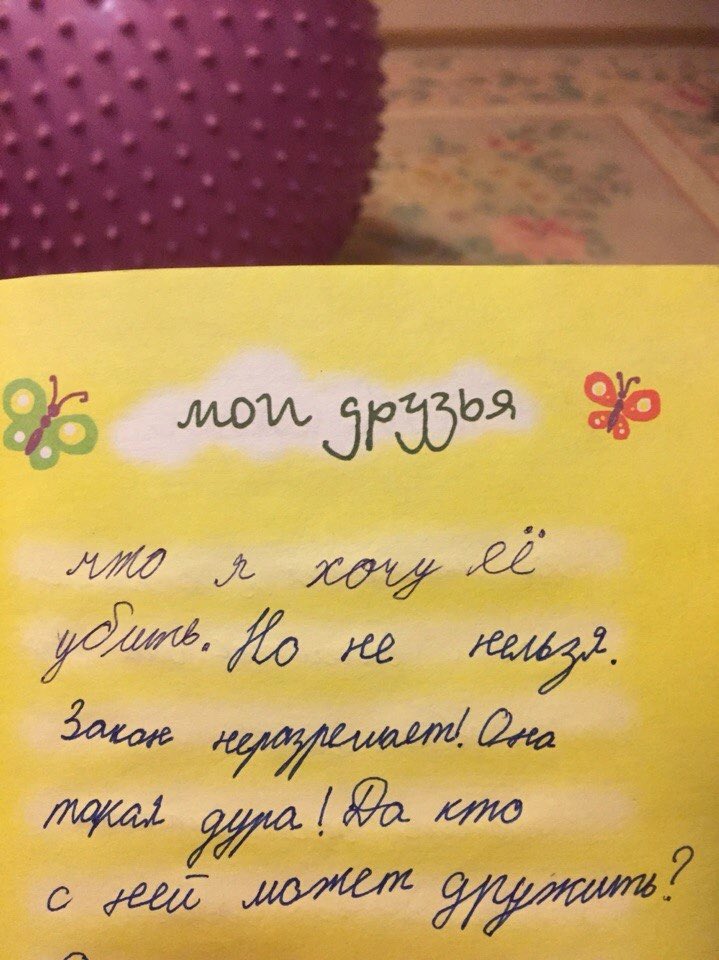 мои друзья
что я хочу её
убить. Но не нельзя.
Закон неразрешает! Она
такая дура! Да кто
с ней может дружить?